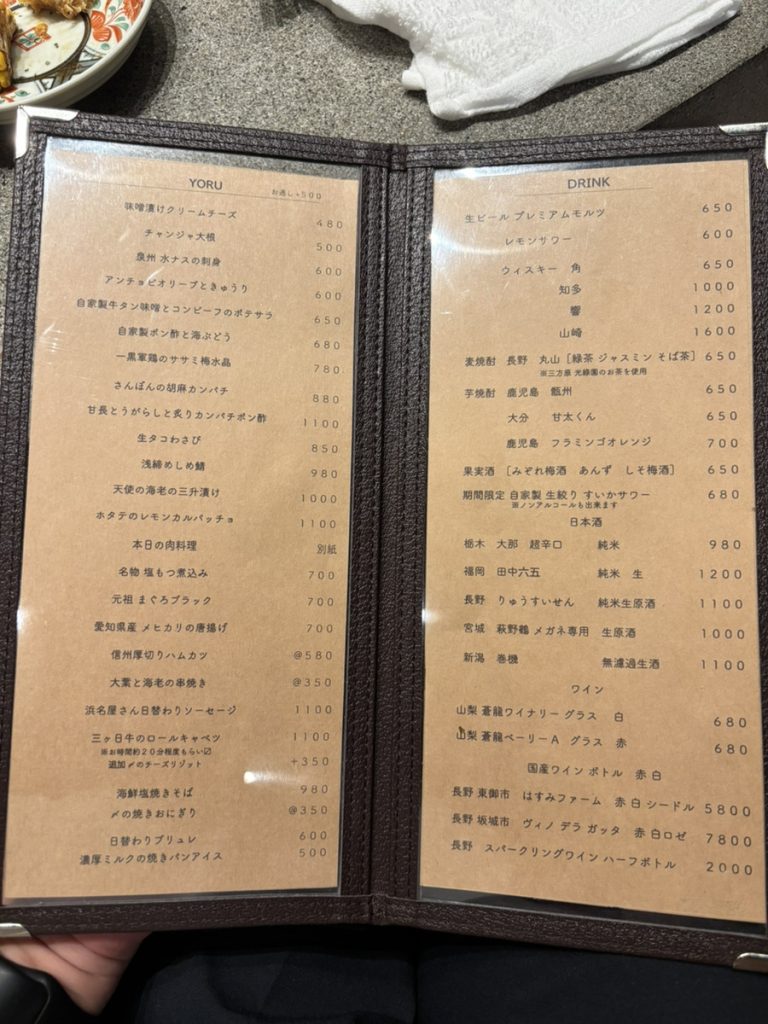 YORU
お通し+500
味噌漬けクリームチーズ 480
チャンジャ大根 500
泉州 水ナスの刺身 600
アンチョビオリーブときゅうり 600
自家製牛タン味噌とコンビーフのポテサラ 650
自家製ポン酢と海ぶどう 680
一黒軍鶏のササミ梅水晶 780
さんぽんの胡麻カンパチ 880
甘長とうがらしと炙りカンパチポン酢 1100
生タコわさび 850
浅締めしめ鯖 980
天使の海老の三升漬け 1000
ホタテのレモンカルパッチョ 1100
本日の肉料理 別紙
名物 塩もつ煮込み 700
元祖 まぐろブラック 700
愛知県産 メヒカリの唐揚げ 700
信州厚切りハムカツ @580
大葉と海老の串焼き @350
浜名屋さん日替わりソーセージ 1100
三ヶ日牛のロールキャベツ 1100
※お時間約20分程度もらい〼
追加〆のチーズリゾット +350
海鮮塩焼きそば 980
〆の焼きおにぎり @350
日替わりブリュレ 600
濃厚ミルクの焼きパンアイス 500
DRINK
生ビール プレミアムモルツ 650
レモンサワー 600
ウィスキー 角 650
知多 1000
響 1200
山崎 1600
麦焼酎 長野 丸山［緑茶 ジャスミン そば茶］ 650
※三方原 光緑園のお茶を使用
芋焼酎 鹿児島 甑州 650
大分 甘太くん 650
鹿児島 フラミンゴオレンジ 700
果実酒 ［みぞれ梅酒 あんず しそ梅酒］ 650
期間限定 自家製 生絞り すいかサワー 680
※ノンアルコールも出来ます
日本酒
栃木 大那 超辛口 純米 980
福岡 田中六五 純米 生 1200
長野 りゅうすいせん 純米生原酒 1100
宮城 萩野鶴 メガネ専用 生原酒 1000
新潟 巻機 無濾過生酒 1100
ワイン
山梨 蒼龍ワイナリー グラス 白 680
山梨 蒼龍ベーリーA グラス 赤 680
国産ワイン ボトル 赤 白
長野 東御市 はすみファーム 赤 白 シードル 5800
長野 坂城市 ヴィノ デラ ガッタ 赤 白ロゼ 7800
長野 スパークリングワイン ハーフボトル 2000